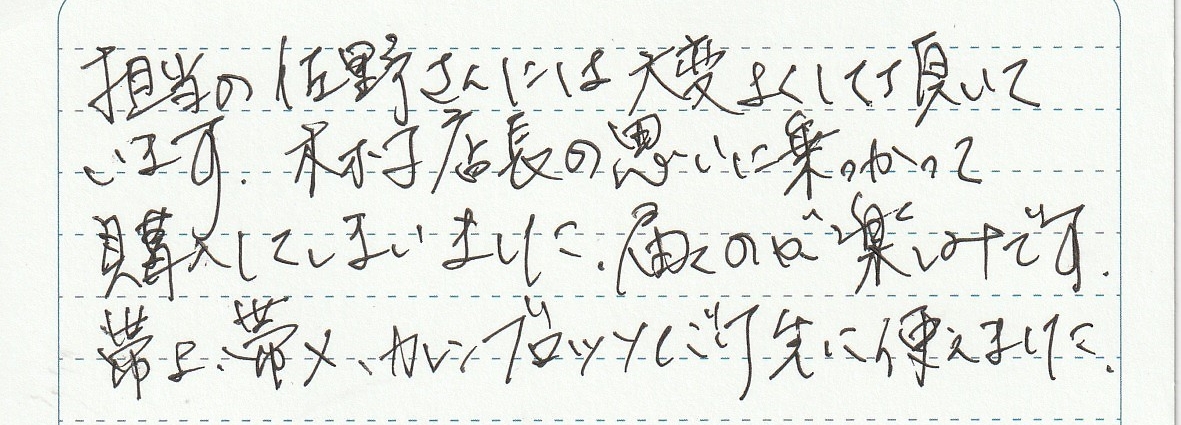 担当の佐野さんには大変よくして頂いて
います. 木村店長の思いに乗っかって
購入してしまいました. 届くのが楽しみです.
帯よ、帯〆、カレンブロッソと 先に使えました.